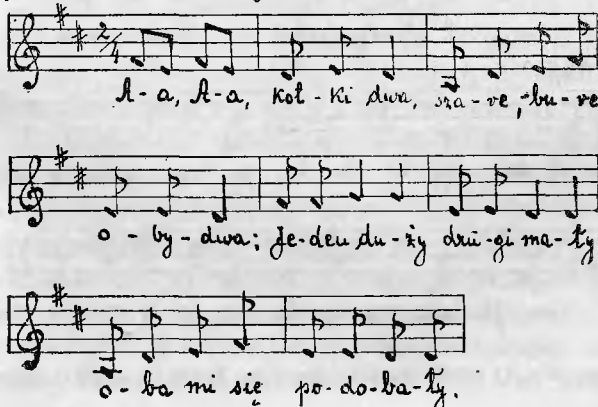 2/4
A-a, A-a, kot-ki dwa, sza-re, bu-re
o-by-dwa; Je-den du-ży dru-gi ma-ły
o-ba mi się po-do-ba-ły.